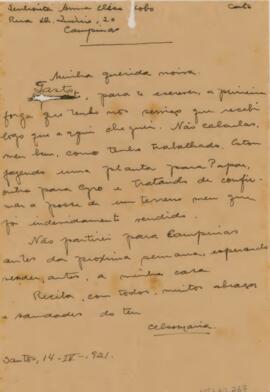 Senhorita Anna Elisa Lobo Carta
Rua Dr. Quirino, 20
Campinas
Minha querida noiva.
Gasto, para te escrever, a primeira
folga que tenho nos serviços que recebi
logo que aqui cheguei. Não calculas,
meu bem, como tenho trabalhado. Estou
fazendo uma planta para Papai,
outra para Cyro e tratando de
a posse de um terreno meu que
foi indevidamente vendido.
Não partirei para Campinas
antes da proxima semana, esperando
vender, antes, a minha casa
Receba, com todos, muitos abraços
e saudades do teu
Celsomaria.
Santos, 14-IV-921.